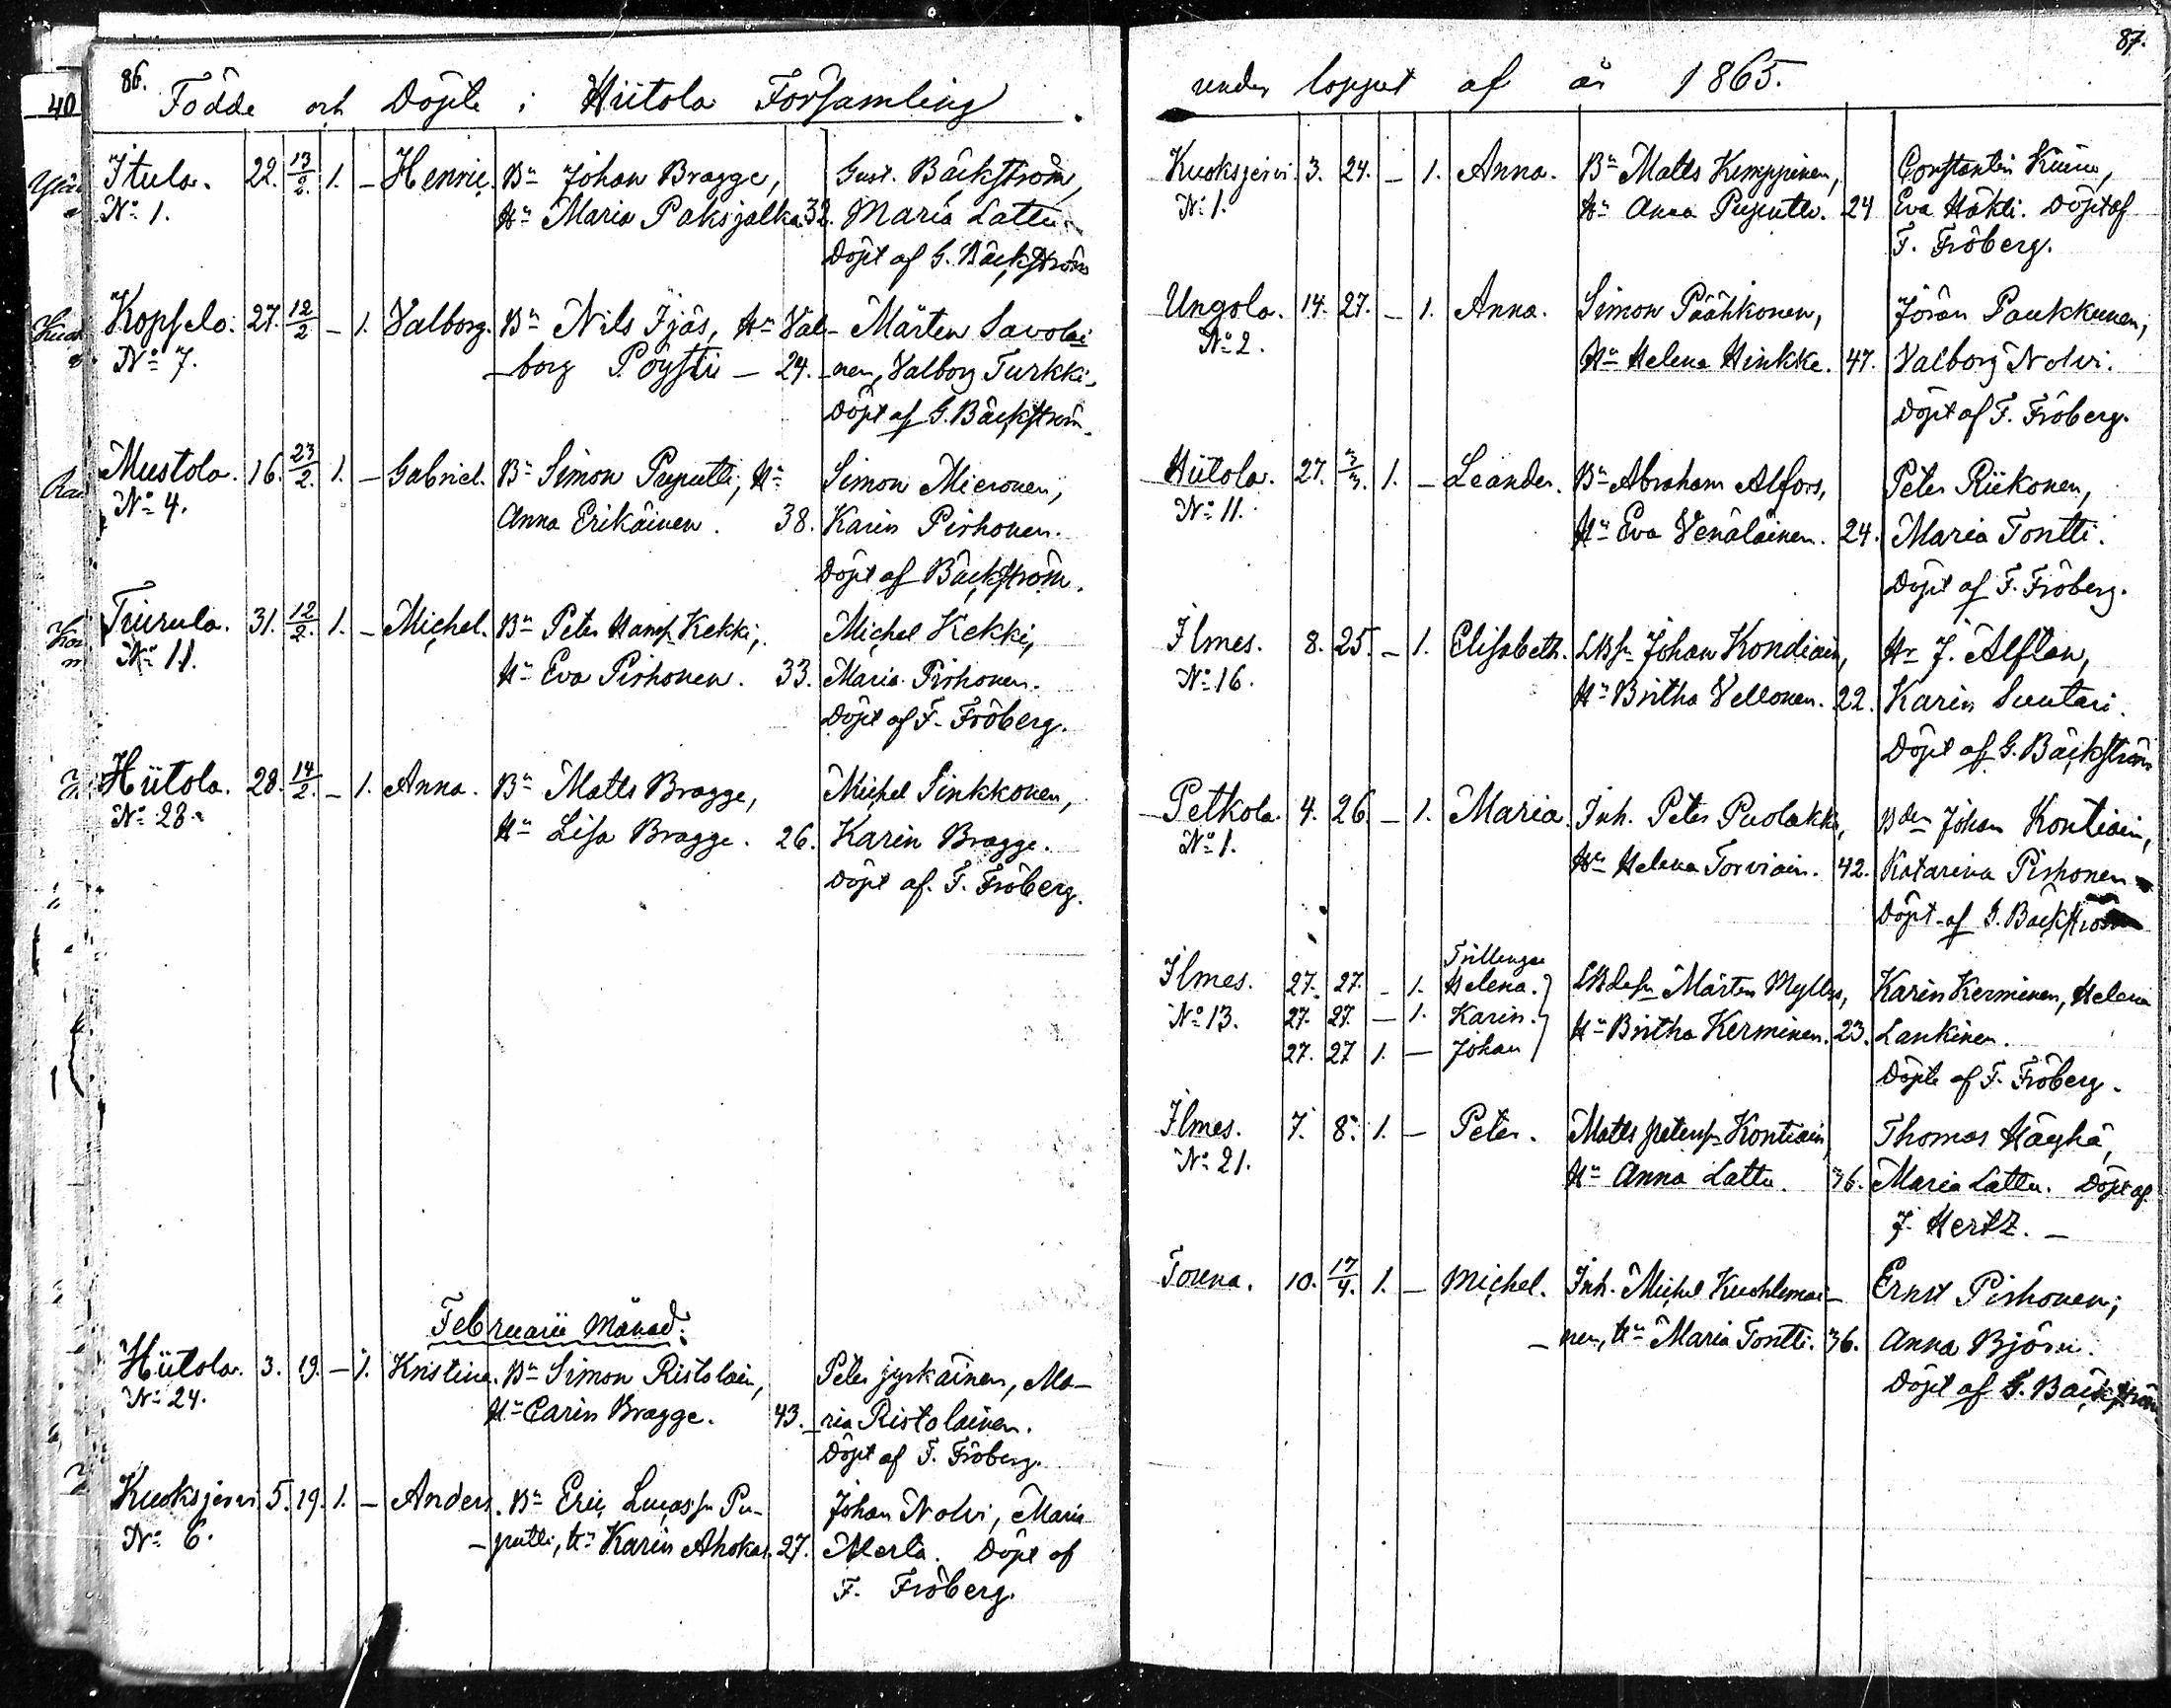 86.
Födde och Döpte i Hiitola Församling
Itula. 22. 13/2. 1. – Henric. Bn Johan Bragge, Gust. Bäckström,
No 1. Hu Maria Paksjalka 32. Maria Lattu.
Döpt af G. Bäckström
Kopsela. 27. 12/2 – 1. Valborg. Bn Nils Ijäs, Hu Val- Mårten Savolai
No 7. -borg Pöysti – 24. -nen, Valborg Turkki.
Döpt af G. Bäckström.
Mustola. 16. 23/2. 1. – Gabriel. Bn Simon Puputti, Hu Simon Mieronen,
No 4. Anna Erikäinen. 38. Karin Pirhonen.
Döpt af Bäckström.
Tiurula. 31. 12/2. 1. – Michel. Bn Peter Kekki, Michel Kekki,
No 11. Hu Eva Pirhonen. 33. Maria Pirhonen.
Döpt af F. Fröberg.
Hiitola. 28. 14/2. – 1. Anna. Bn Matts Bragge, Michel Sinkkonen,
No 28. Hu Lisa Bragge. 26. Karin Bragge.
Döpt af. F. Fröberg.
Februarii Månad.
Hiitola. 3. 19. – 1. Kristina. Bn Simon Ristolain, Peter Jyrkäinen, Ma-
No 24. Hu Carin Bragge. 43. -ria Ristolainen.
Döpt af F. Fröberg.
Kuoksjervi 5. 19. 1. – Anders. Bn Eric Lucass. Pu- Johan Nolvi, Maria
No 6. -putti, Hu Karin Ahokas. 27. Merla. Döpt af
F. Fröberg.
87.
under loppet af år 1865.
Kuoksjervi. 3. 24. – 1. Anna. Bn Matts Kemppinen, Constantin
No 1. Hu Anna Puputti. 24 Eva Häkli. Döpt af
F. Fröberg.
Ungola. 14. 27. – 1. Anna. Simon Päähkonen, Jöran Paukkunen,
No 2. Hu Helena Hinkke. 47. Valborg Nolvi.
Döpt af F. Fröberg.
Hiitola. 27. 3/3. 1. – Leander. Bn Abraham Alfors, Peter Riikonen,
No 11. Hu Eva Venäläinen. 24. Maria Tontti.
Döpt af F. Fröberg.
Ilmes. 8. 25. – 1. Elisabeth. Johan Kondiain, Hr J. Alftan,
No 16. Hu Britha Vellonen. 22. Karin Suutari.
Döpt af G. Bäckström
Petkola. 4. 26. – 1. Maria. Inh. Peter Puolakka, Bden Johan Kontiain,
No 1. Hu Helena Torviain. 42. Katarina Pirhonen
Döpt af G. Bäckström
Trillingar
Ilmes. 27. 27. – 1. Helena. Mårten Myllys, Karin Kerminen, Helena
No 13. 27. 27. – 1. Karin. Hu Britha Kerminen. 23. Lankinen.
27. 27 1. – Johan Döpte af F. Fröberg.
Ilmes. 7. 8. 1. – Peter. Matts Kontiain, Thomas Häyhä,
No 21. Hu Anna Lattu. 36. Maria Lattu. Döpt af
J. Hertz. –
Torena. 10. 17/4. 1. – Michel. Inh. Michel Kuohlemai- Ernst Pirhonen,
-nen, Hu Maria Tontti. 36. Anna Björn.
Döpt af G. Bäckström